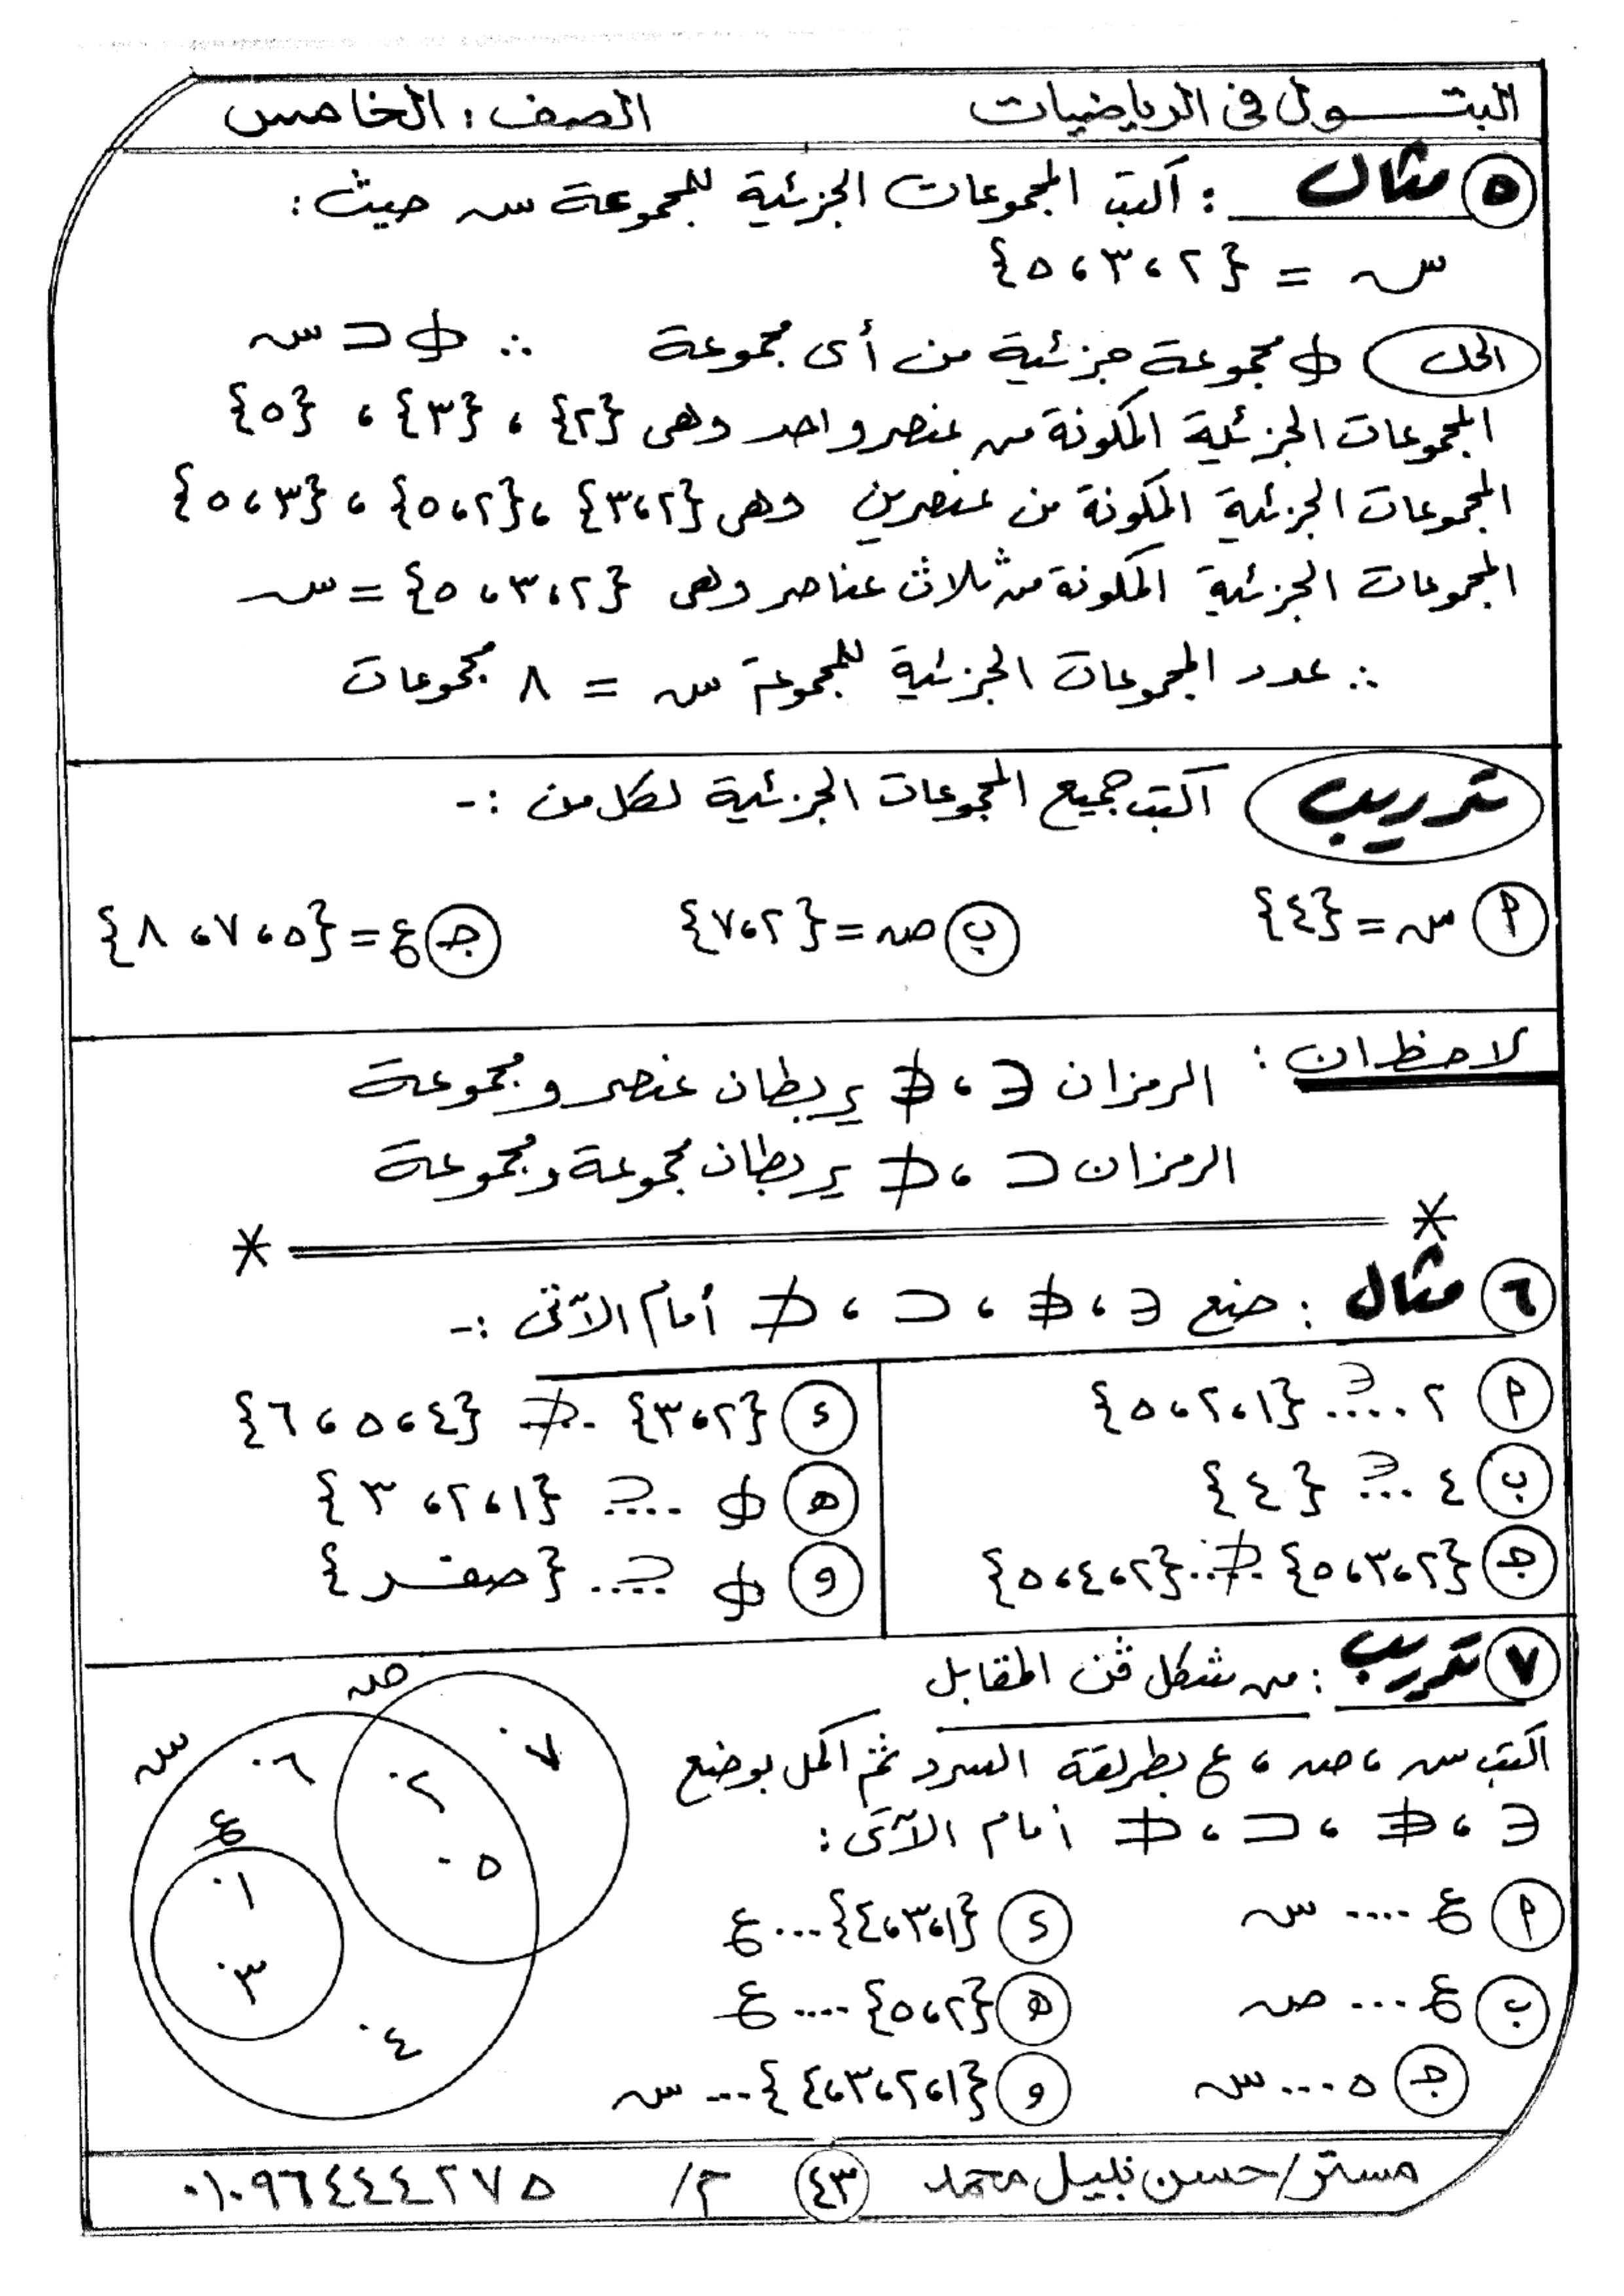 البتـــول فى الرياضيات
الصف : الخامس
٥ مثال : أكتب المجموعات الجزئية للمجموعة س حيث :
س = {٢ ، ٣ ، ٥}
الحل ∅ مجموعة جزئية من أى مجموعة ∴ ∅ ⊂ س
المجموعات الجزئية المكونة من عنصر واحد وهى {٢} ، {٣} ، {٥}
المجموعات الجزئية المكونة من عنصرين وهى {٢ ، ٣} ، {٢ ، ٥} ، {٣ ، ٥}
المجموعات الجزئية المكونة من ثلاث عناصر وهى {٢ ، ٣ ، ٥} = س
∴ عدد المجموعات الجزئية للمجموعة س = ٨ مجموعات
تدريب أكتب جميع المجموعات الجزئية لكل من :-
أ س = {٤}
ب ص = {٢ ، ٧}
جـ ع = {٥ ، ٧ ، ٨}
لاحظ ان : الرمزان ∈ ، ∉ يربطان عنصر و مجموعة
الرمزان ⊂ ، ⊄ يربطان مجموعة ومجموعة
٦ مثال : ضع ∈ ، ∉ ، ⊂ ، ⊄ أمام الآتى :-
أ ٢ ..∈.. {١ ، ٢ ، ٥}
ب ٤ ..∈.. {٤}
جـ {٢ ، ٣ ، ٥} ..⊄.. {٢ ، ٤ ، ٥}
د {٢ ، ٣} ..⊄.. {٤ ، ٥ ، ٦}
هـ ∅ ..⊂.. {١ ، ٢ ، ٣}
و ∅ ..⊂.. {صفر}
٧ تدريب : من شكل ڤن المقابل
أكتب س ، ص ، ع بطريقة السرد ثم اكمل بوضع
∈ ، ∉ ، ⊂ ، ⊄ أمام الآتى :
أ ع .... س
ب ع .... ص
جـ ٥ .... س
د {١ ، ٣ ، ٤} .... ع
هـ {٢ ، ٥} .... ع
و {١ ، ٢ ، ٣ ، ٤} .... س
ص
س
٧
٦
٢
ع
٥
١
٣
٤
مستر/ حسن نبيل محمد
٤٣
م/ ٠١٠٩٦٤٤٤٢٧٥